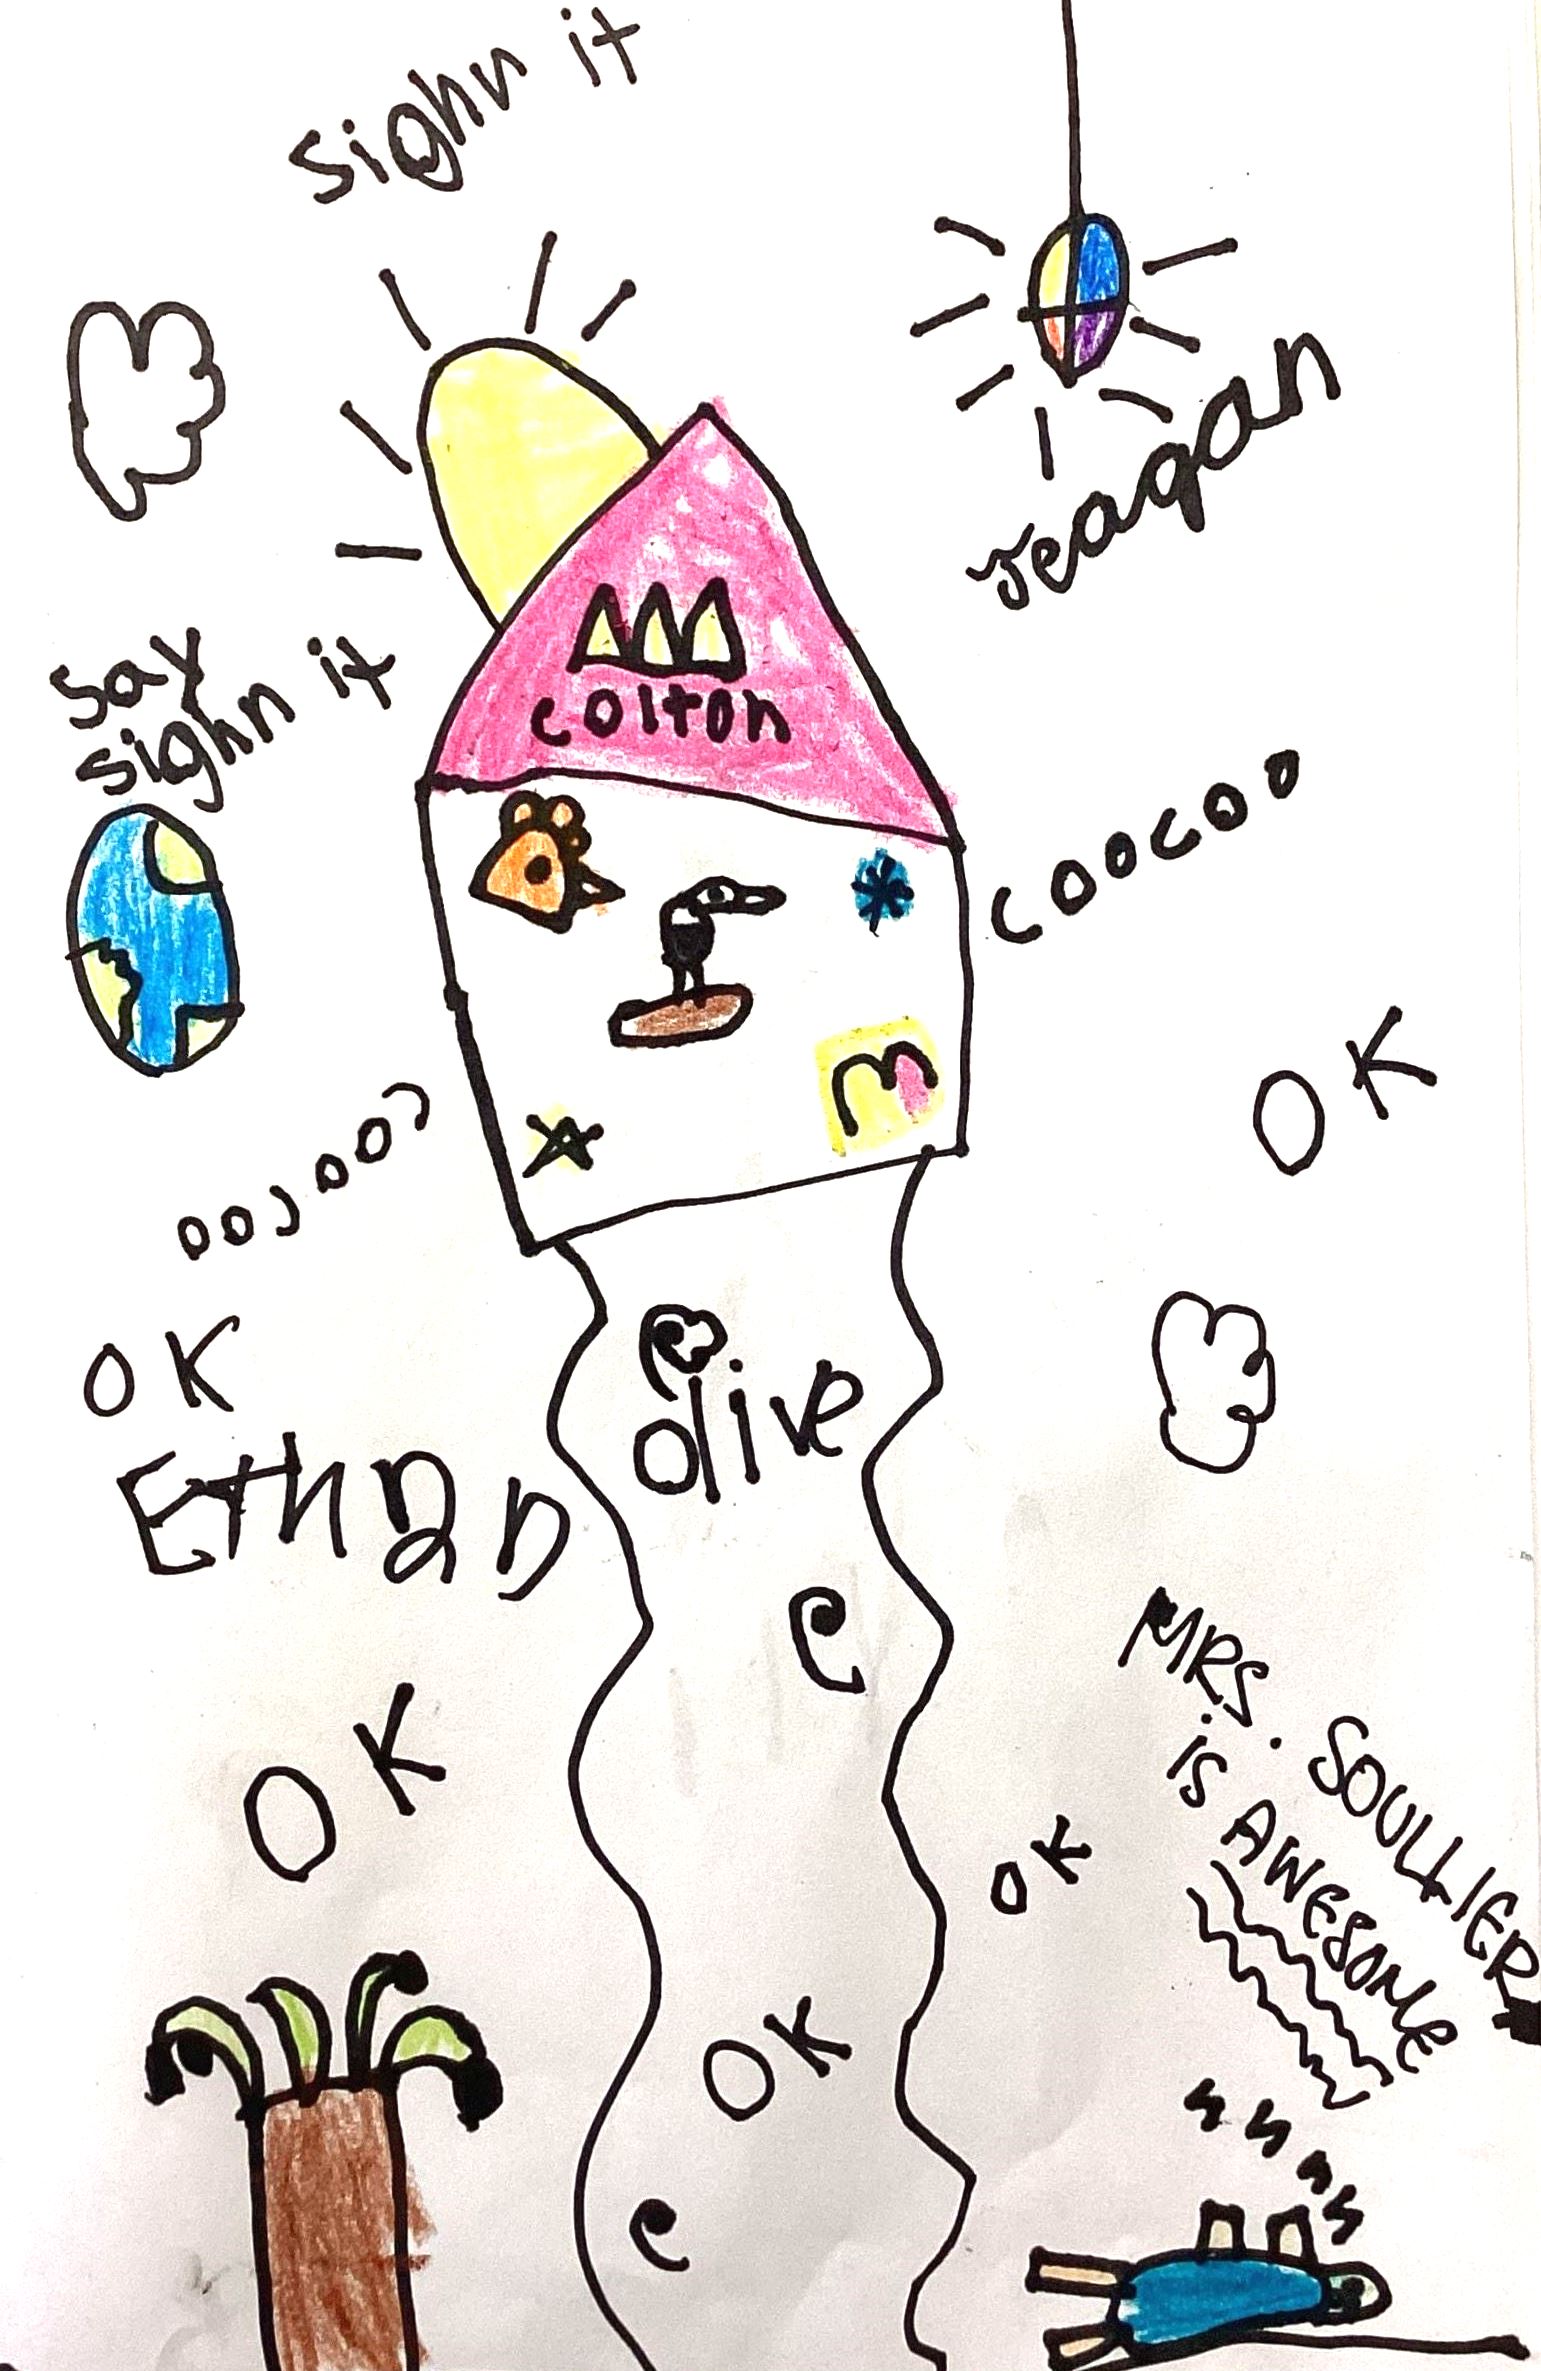 Sighn it
Teagan
Say
sighn it
colton
coocoo
M
coocoo
OK
OK
olive
Ethan
MRS. SOULLIER
is AWESOME
OK
OK
OK